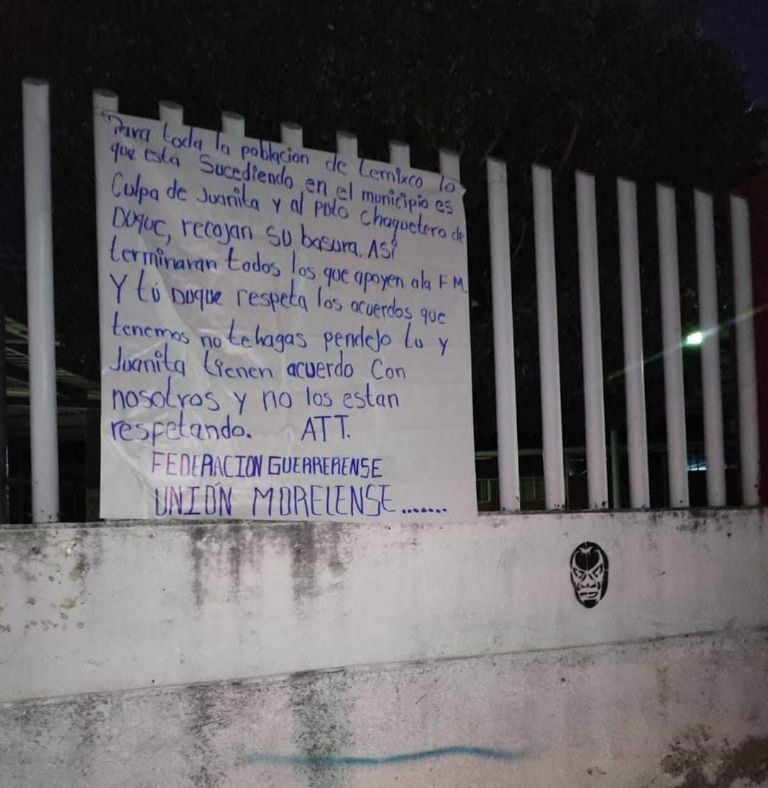 Para toda la poblacion de temixco lo
que está Sucediendo en el municipio es
Culpa de Juanita y al puto Chaquetero de
DUQUE, recojan SU basura. ASí
terminaran todos los que apoyen ala F M.
Y tú DUQUE respeta los acuerdos que
tenemos no tehagas pendejo tu y
Juanita tienen acuerdo Con
nosotros y no los estan
respetando. ATT.
FEDERACION GUERRERENSE
UNIÓN MORELENSE.......